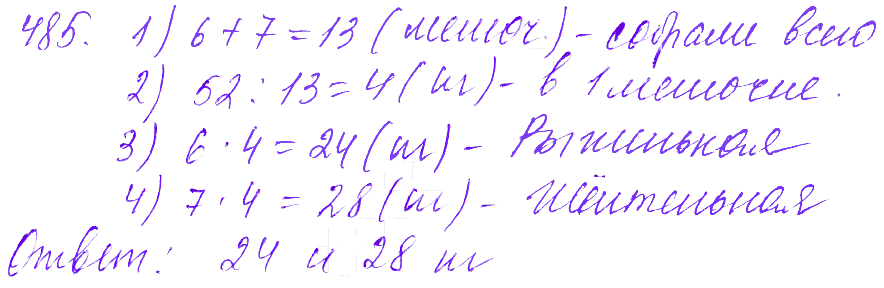 485. 1) 6 + 7 = 13 (мешоч.) - собрали всего
2) 52 : 13 = 4 (кг) - в 1 мешочке.
3) 6 · 4 = 24 (кг) -
4) 7 · 4 = 28 (кг) -
Ответ: 24 и 28 кг